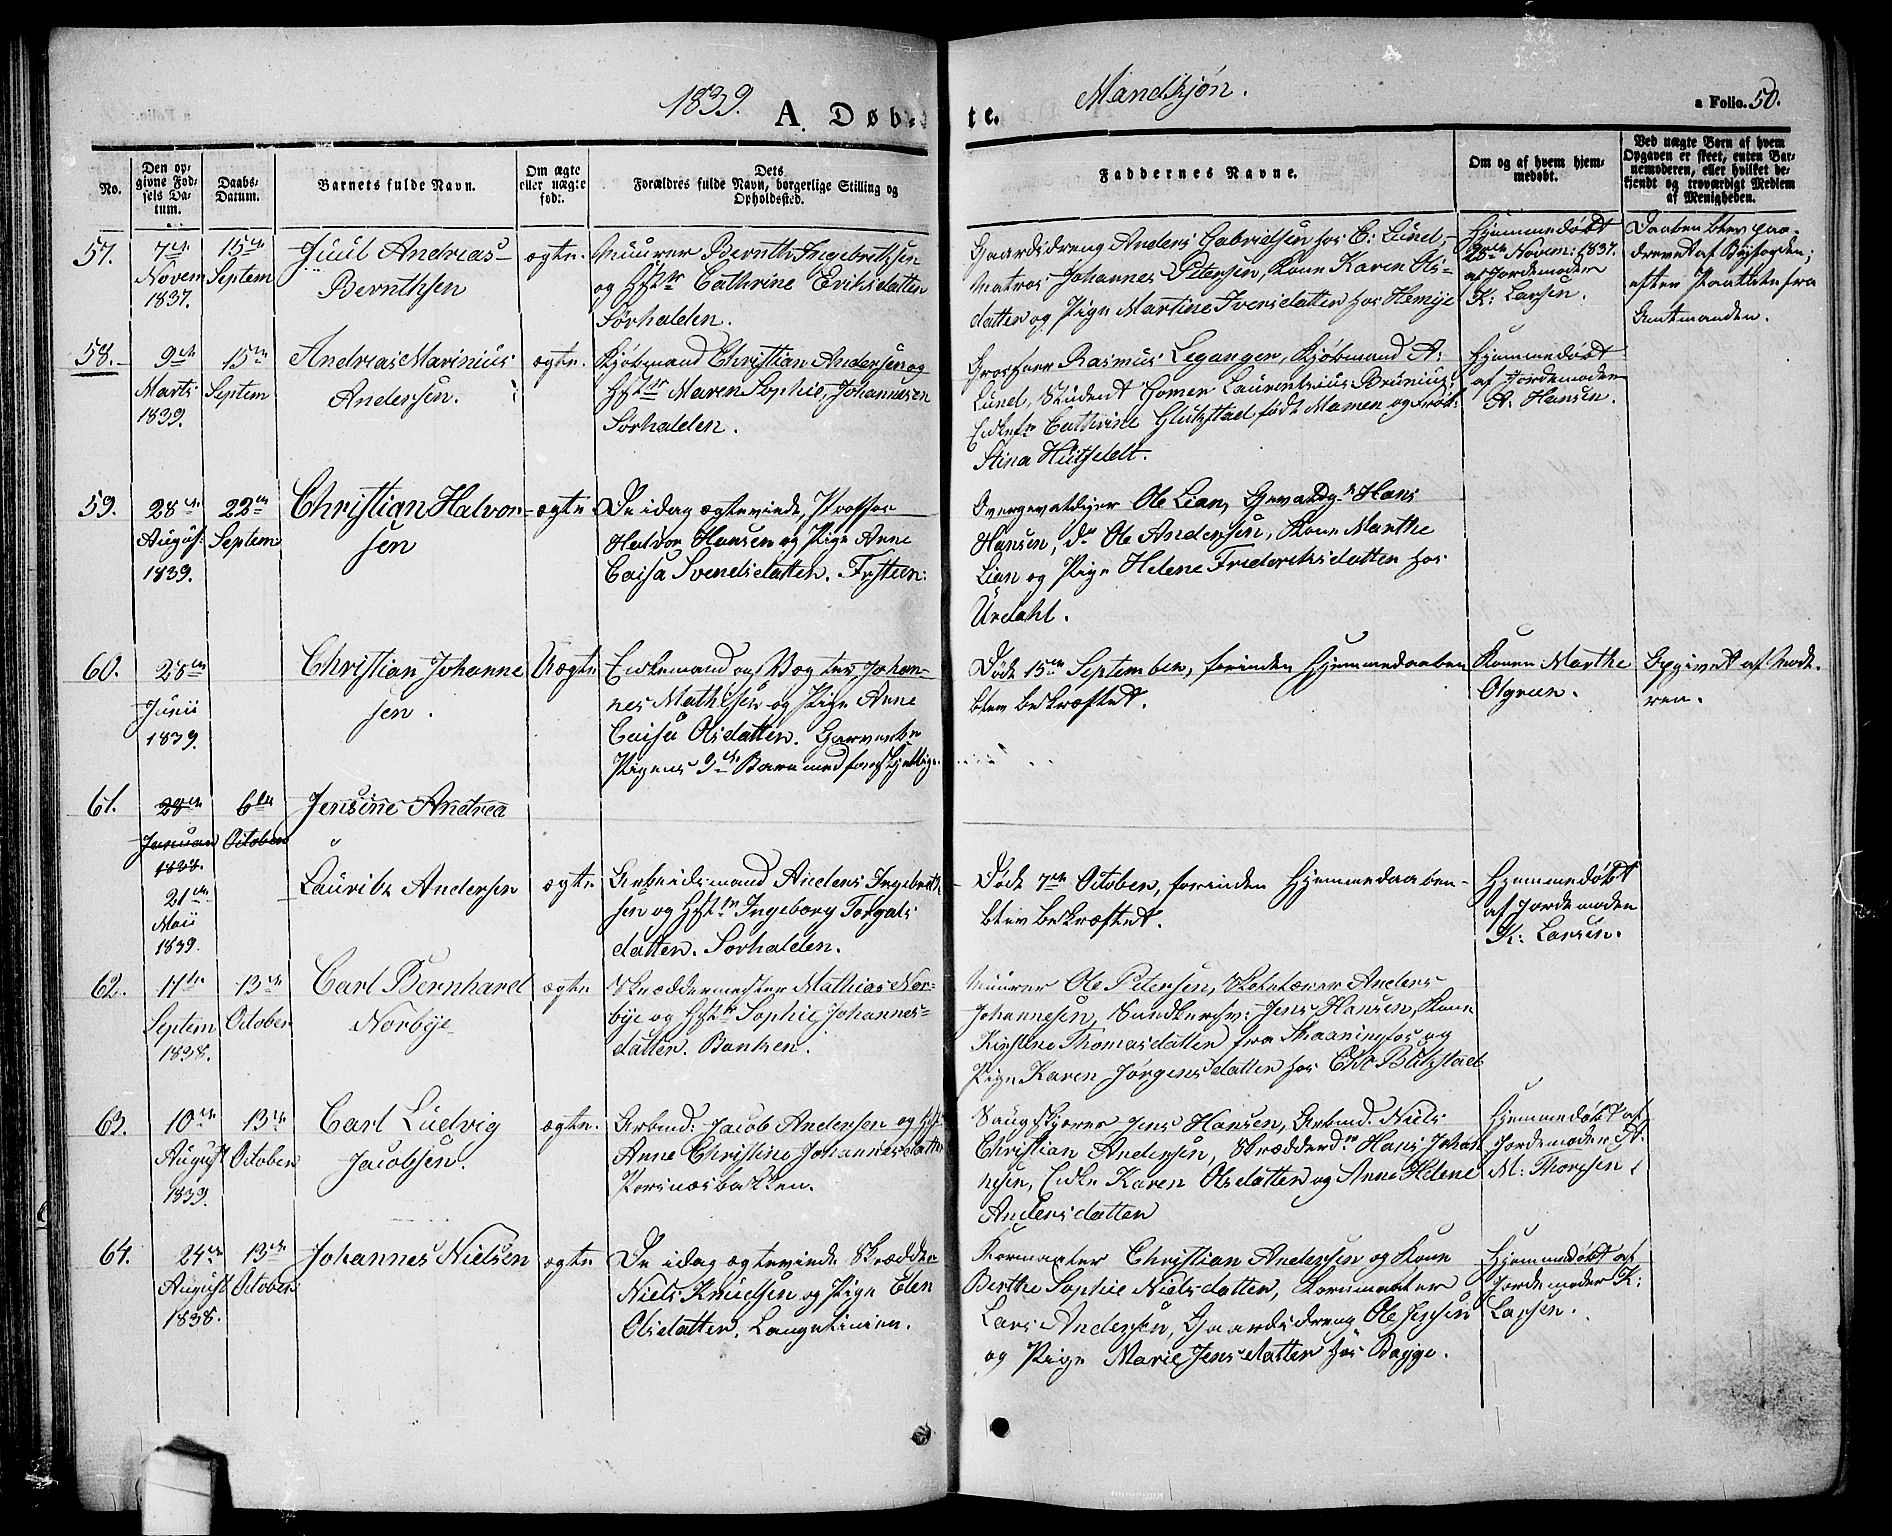 1839.
A. Døbte.
Mandkjøn.
a Folio. 50.
No.
Den opgivne Fødsels Datum.
Daabs-Datum.
Barnets fulde Navn.
Om ægte eller uægte født.
Dets Forældres fulde Navn, borgerlige Stilling og Opholdssted.
Faddernes Navne.
Om og af hvem hjemmedøbt.
Ved uægte Børn af hvem Opgaven er skeet, enten Barnemoderen, eller hvilket bekjendt og troværdigt Medlem af Menigheden.
57.
7de Novem 1837.
15de Septem
Juul Andreas
Bernthsen
ægte.
Muurer Bernth Ingebrethsen
og Hstr Cathrine Eriksdatter
Sørhalden.
Gaardsdreng Anders Gabrielsen hos C: Lund,
Matros Johannes Petersen, Kone Karen Ols-
datter og Pige Martine Iversdatter hos Hemye
Hjemmedøbt
25de Novem: 1837.
af Jordemoder
K: Larsen.
Daaben blev paa-
drevet af Byfogden,
efter Paatale fra
Amtmanden.
58.
9de Marts 1839.
15de Septem
Andreas Marinius
Andersen.
ægte.
Kjøbmand Christian Andersen og
Hstr Maren Sophie Johannesen
Sørhalden.
Grosserer Rasmus Legangen, Kjøbmand A:
Lund, Student Gomer Laurentsius Brunius,
Enkefr Cathrine Glükstad født Mamen og Frøk:
Stina Hüitfeldt.
Hjemmedøbt
af Jordemoder
A: Hansen.
59.
28de August 1839.
22de Septem
Christian Halvor-
sen
ægte.
De idag ægteviede, Profos
Halvor Hansen og Pige Anne
Caisa Svendsdatter. Festen:
Overgevaldiger Ole Lian, Gevaldgr Hans
Hansen, do Ole Andersen, Kone Marthe
Lian og Pige Helene Frederiksdatter hos
Urdahl.
60.
28de Junii 1839.
Christian Johanne
sen.
Uægte
Enkemand og Vægter Johan-
nes Mathisen og Pige Anne
Caisa Olsdatter. Garverbk
Pigens 3de Barn med forskjellige
Døde 15de September, forinden Hjemmedaaben
blev bekræftet.
Konen Marthe
Olgreen.
Opgivet af Mode-
ren.
61.
28de Januar 1838.
6te October
Jensine Andrea
21de Maii 1839.
Lauritz Andersen
ægte
Arbeidsmand Anders Ingebreth
sen og Hstr Ingeborg Torgals
datter. Sørhalden.
Døde 7de October, forinden Hjemmedaaben
blev bekræftet.
Hjemmedøbt
af Jordemoder
K: Larsen.
62.
11te Septem 1838.
13de October
Carl Bernhard
Norbye
ægte
Skræddermester Mathias Nor-
bye og Hstr Sophie Johannes-
datter. Banken.
Muurer Ole Petersen, Anders
Johannesen, Jens Hansen, Kone
Kirstine Thomasdatter fra Skaaningfos og
Pige Karen Jørgensdatter hos Chr Butzstad
63.
10de August 1839.
13de October
Carl Ludvig
Jacobsen.
ægte.
Arbmd: Jacob Andersen og Hst
Anne Christine Johannesdatter
Porsnæsbakken.
Saugskjærer Jens Hansen, Arbmd. Niels
Christian Andersen, Skrædderdr Hans Johan
nesen, Enke Karen Olsdatter og Anne Helene
Andersdatter
Hjemmedøbt af
Jordemoder A.
M: Thoresen
64.
24de August 1838.
13de October
Johannes Nielsen
ægte
De idag ægteviede Skrædder
Niels Knudsen og Pige Elen
Olsdatter. Langelinien.
Kornmaaler Christian Andersen og Kone
Berthe Sophie Nielsdatter, Kornmaaler
Lars Andersen, Gaardsdreng Ole Jepsen
og Pige Marie Jensdatter hos Bagge.
Hjemmedøbt af
Jordemoder K:
Larsen.